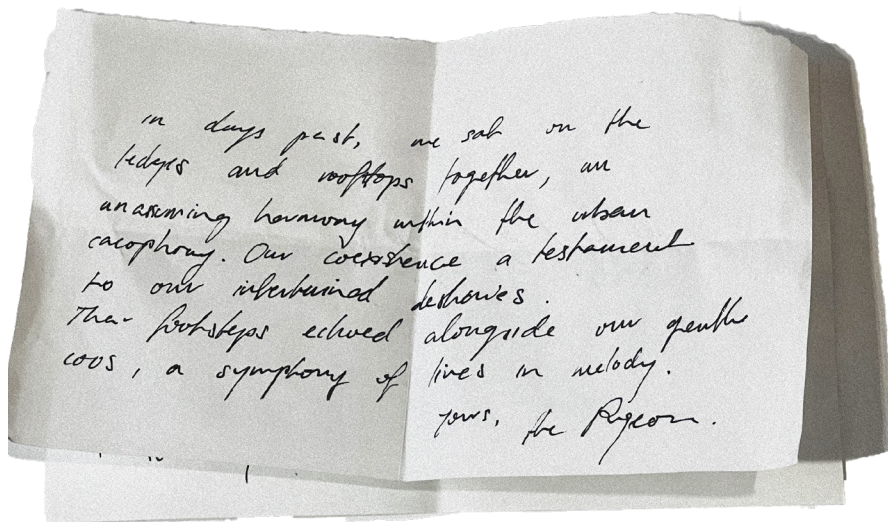 in days past, we sat on the
ledges and rooftops together, an
unassuming harmony within the urban
cacophony. Our coexistence a testament
to our intertwined destinies.
Their footsteps echoed alongside our gentle
coos, a symphony of lives in melody.
yours, the Pigeon.